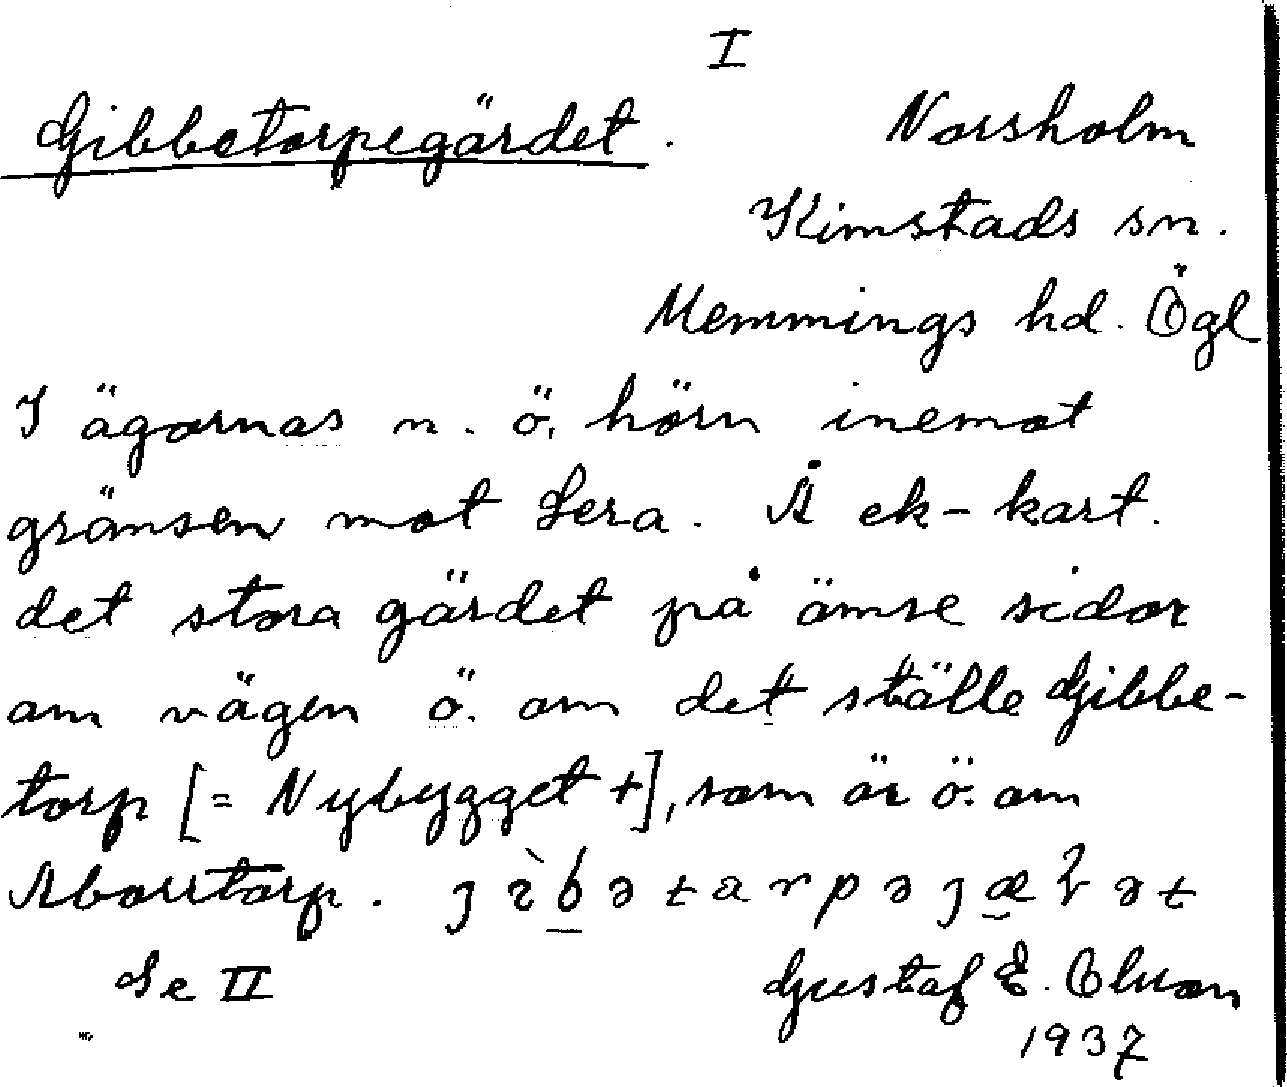 I
Gibbetorpegärdet.
Norsholm
Kimstads sn.
Memmings hd. Ögl
I ägornas n. ö. hörn inemot
gränsen mot Lera. Å ek-kart.
det stora gärdet på ömse sidor
om vägen ö. om det ställe Gibbe-
torp [= Nybygget +], som är ö. om
Aborrtorp.
Se II
Gustaf E.
1937